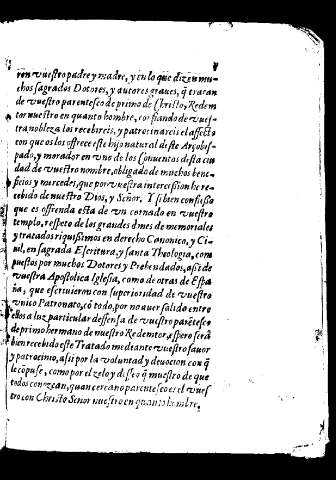 ron vuestro padre y madre, y en lo que dizen mu-
chos sagrados Dotores, y autores graues, q̃ tratan
de vuestro parentesco de primo de Christo, Redem
tor nuestro en quanto hombre, confiando de vues-
tra nobleza los recebireis, y patrocinareis el affecto
con que os los offrece este hijo natural deste Arçobis-
pado, y morador en vno de los Conuentos desta ciu
dad de vuestro nombre, obligado de muchos bene-
ficios y mercedes, que por vuestra intercession he re-
cebido de nuestro Dios, y Señor. Y si bien confiesso
que es offrenda esta de vn cornado en vuestro
templo, respeto de los grandes dones de memoriales
y tratados riquissimos en derecho Canonico, y Ci-
uil, en sagrada Escritura, y santa Theologia, com
puestos por muchos Dotores y Prebendados, assi de
vuestra Apostolica Iglesia, como de otras de Espa-
ña, que escriuieron con superioridad de vuestro
vnico Patronato, cõ todo, por no auer salido entre
ellos a luz particular deffensa de vuestro parẽtesco
de primo hermano de nuestro Redemtor, espero será
bien recebido este Tratado mediante vuestro fauor
y patrocinio, assi por la voluntad y deuocion con q̃
le cõpuse, como por el zelo y desseo q̃ muestro de que
todos conozcan, quan cercano parentesco es el vues
tro con Christo Señor nuestro en quanto hombre,